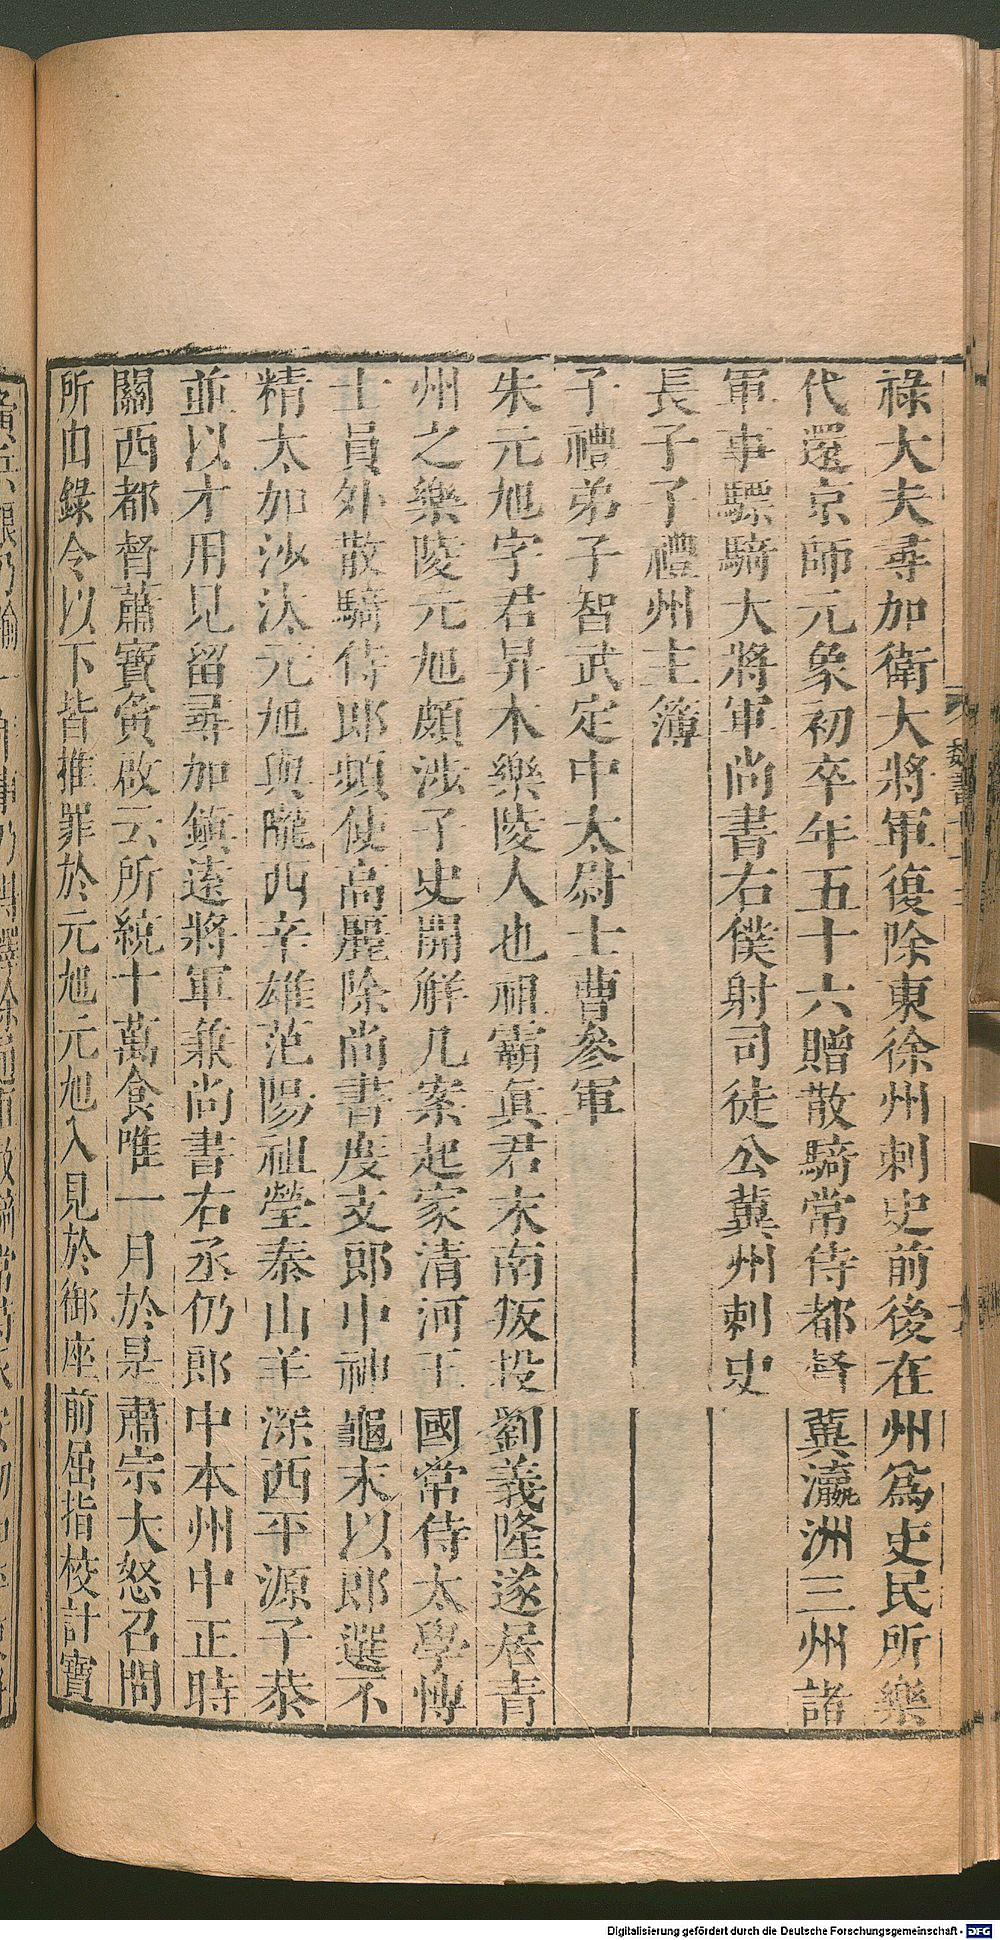 祿大夫尋加衛大將軍復除東徐州刺史前後在州爲史民所樂
代還京師元象初卒年五十六贈散騎常侍都督冀瀛洲三州諸
軍事驃騎大將軍尚書右僕射司徒公冀州刺史
長子子禮州主簿
子禮弟子智武定中太尉士曹參軍
朱元旭字君昇本樂陵人也祖霸眞君末南叛投劉義隆遂居青
州之樂陵元旭頗涉子史開解几案起家清河王國常侍太學博
士員外散騎侍郎頻使高麗除尚書度支郎中神龜末以郎選不
精大加沙汰元旭與隴西辛雄范陽祖瑩泰山羊深西平源子恭
並以才用見留尋加鎭遠將軍兼尚書右丞仍郎中本州中正時
關西都督蕭寶夤啟云所統十萬食唯一月於是肅宗大怒召問
所由錄令以下皆推罪於元旭元旭入見於御座前屈指校計寶
魏書
Digitalisierung gefördert durch die Deutsche Forschungsgemeinschaft - DFG